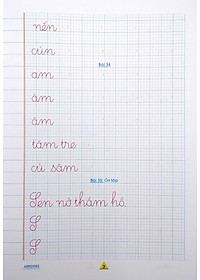 nến
cún
Bài 34
am
ăm
âm
tăm tre
củ sâm
Bài 35: Ôn tập
Sen nở thắm hồ.
S
S